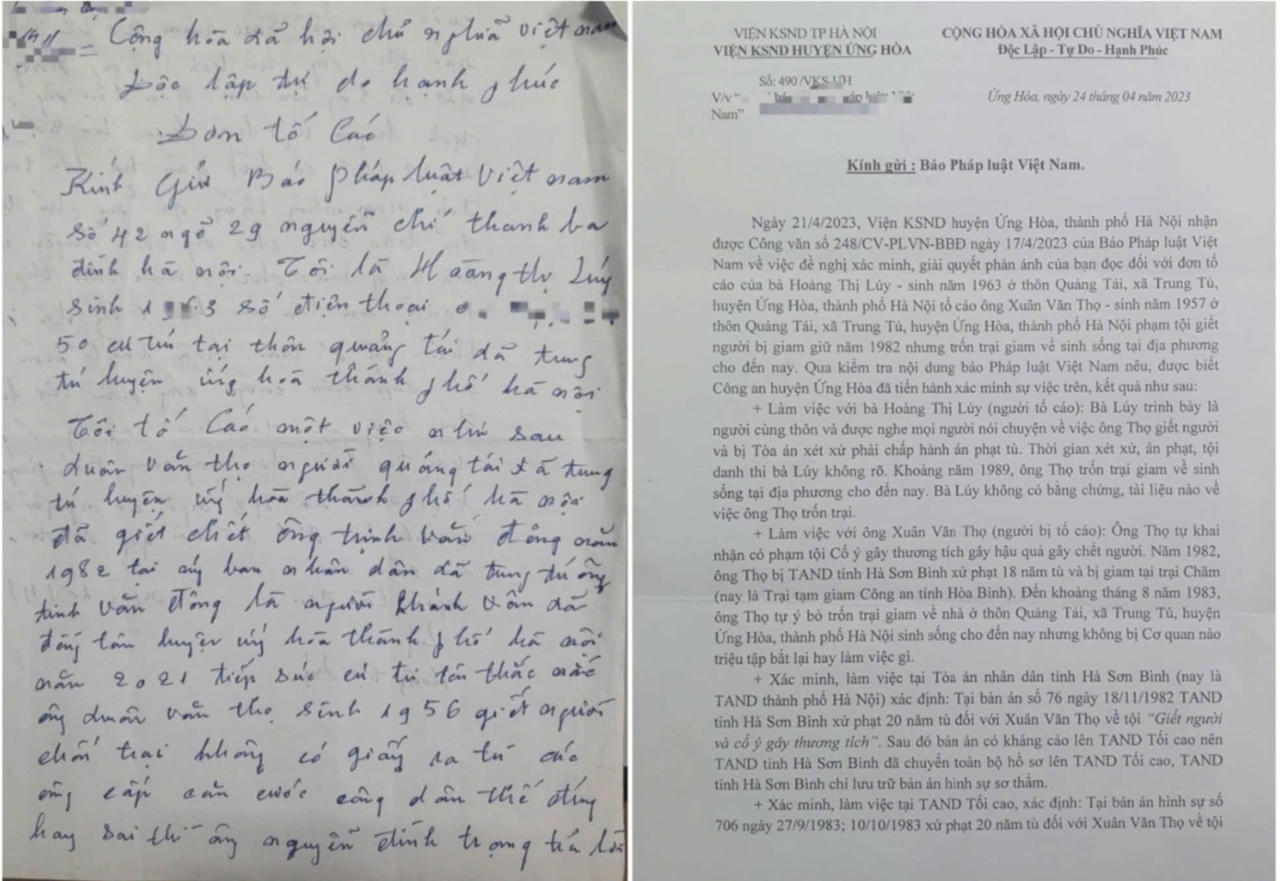 Cộng hòa xã hội chủ nghĩa việt nam
Độc lập tự do hạnh phúc
Đơn tố Cáo
Kính Gửi Báo pháp luật việt nam
số 42 ngõ 29 nguyễn chí thanh ba
đình hà nội. Tôi là Hoàng thị Lúy
sinh 1963 số điện thoại 0
50 cư trú tại thôn quảng tái xã trung
tú huyện ứng hoà thành phố hà nội
Tôi tố Cáo một việc như sau
xuân văn thọ người quảng tái xã trung
tú huyện ứng hòa thành phố hà nội
đã giết chết ông trịnh văn đông năm
1982 tại ủy ban nhân dân xã trung tú ông
trinh văn đông là người khánh vân xã
đồng tân huyện ứng hòa thành phố hà nội
năm 2021 tiếp súc cử tri tôi thắc mắc
ông xuân văn thọ sinh 1956 giết người
chốn trại không có giấy ra tù các
ông cấp căn cước công dân thế đúng
hay sai thì ông nguyễn đình trọng trả lời
VIỆN KSND TP HÀ NỘI
VIỆN KSND HUYỆN ỨNG HÒA
Số: 490 /VKS-UH
V/v "
Nam"
CỘNG HÒA XÃ HỘI CHỦ NGHĨA VIỆT NAM
Độc Lập - Tự Do - Hạnh Phúc
Ứng Hòa, ngày 24 tháng 04 năm 2023
Kính gửi : Báo Pháp luật Việt Nam.
Ngày 21/4/2023, Viện KSND huyện Ứng Hòa, thành phố Hà Nội nhận
được Công văn số 248/CV-PLVN-BBĐ ngày 17/4/2023 của Báo Pháp luật Việt
Nam về việc đề nghị xác minh, giải quyết phản ánh của bạn đọc đối với đơn tố
cáo của bà Hoàng Thị Lúy - sinh năm 1963 ở thôn Quảng Tái, xã Trung Tú,
huyện Ứng Hòa, thành phố Hà Nội tố cáo ông Xuân Văn Thọ - sinh năm 1957 ở
thôn Quảng Tái, xã Trung Tú, huyện Ứng Hòa, thành phố Hà Nội phạm tội giết
người bị giam giữ năm 1982 nhưng trốn trại giam về sinh sống tại địa phương
cho đến nay. Qua kiểm tra nội dung báo Pháp luật Việt Nam nêu, được biết
Công an huyện Ứng Hòa đã tiến hành xác minh sự việc trên, kết quả như sau:
+ Làm việc với bà Hoàng Thị Lúy (người tố cáo): Bà Lúy trình bày là
người cùng thôn và được nghe mọi người nói chuyện về việc ông Thọ giết người
và bị Tòa án xét xử phải chấp hành án phạt tù. Thời gian xét xử, án phạt, tội
danh thì bà Lúy không rõ. Khoảng năm 1989, ông Thọ trốn trại giam về sinh
sống tại địa phương cho đến nay. Bà Lúy không có bằng chứng, tài liệu nào về
việc ông Thọ trốn trại.
+ Làm việc với ông Xuân Văn Thọ (người bị tố cáo): Ông Thọ tự khai
nhận có phạm tội Cố ý gây thương tích gây hậu quả gây chết người. Năm 1982,
ông Thọ bị TAND tỉnh Hà Sơn Bình xử phạt 18 năm tù và bị giam tại trại Chăm
(nay là Trại tạm giam Công an tỉnh Hòa Bình). Đến khoảng tháng 8 năm 1983,
ông Thọ tự ý bỏ trốn trại giam về nhà ở thôn Quảng Tái, xã Trung Tú, huyện
Ứng Hòa, thành phố Hà Nội sinh sống cho đến nay nhưng không bị Cơ quan nào
triệu tập bắt lại hay làm việc gì.
+ Xác minh, làm việc tại Tòa án nhân dân tỉnh Hà Sơn Bình (nay là
TAND thành phố Hà Nội) xác định: Tại bản án số 76 ngày 18/11/1982 TAND
tỉnh Hà Sơn Bình xử phạt 20 năm tù đối với Xuân Văn Thọ về tội "Giết người
và cố ý gây thương tích". Sau đó bản án có kháng cáo lên TAND Tối cao nên
TAND tỉnh Hà Sơn Bình đã chuyển toàn bộ hồ sơ lên TAND Tối cao, TAND
tỉnh Hà Sơn Bình chỉ lưu trữ bản án hình sự sơ thẩm.
+ Xác minh, làm việc tại TAND Tối cao, xác định: Tại bản án hình sự số
706 ngày 27/9/1983; 10/10/1983 xử phạt 20 năm tù đối với Xuân Văn Thọ về tội